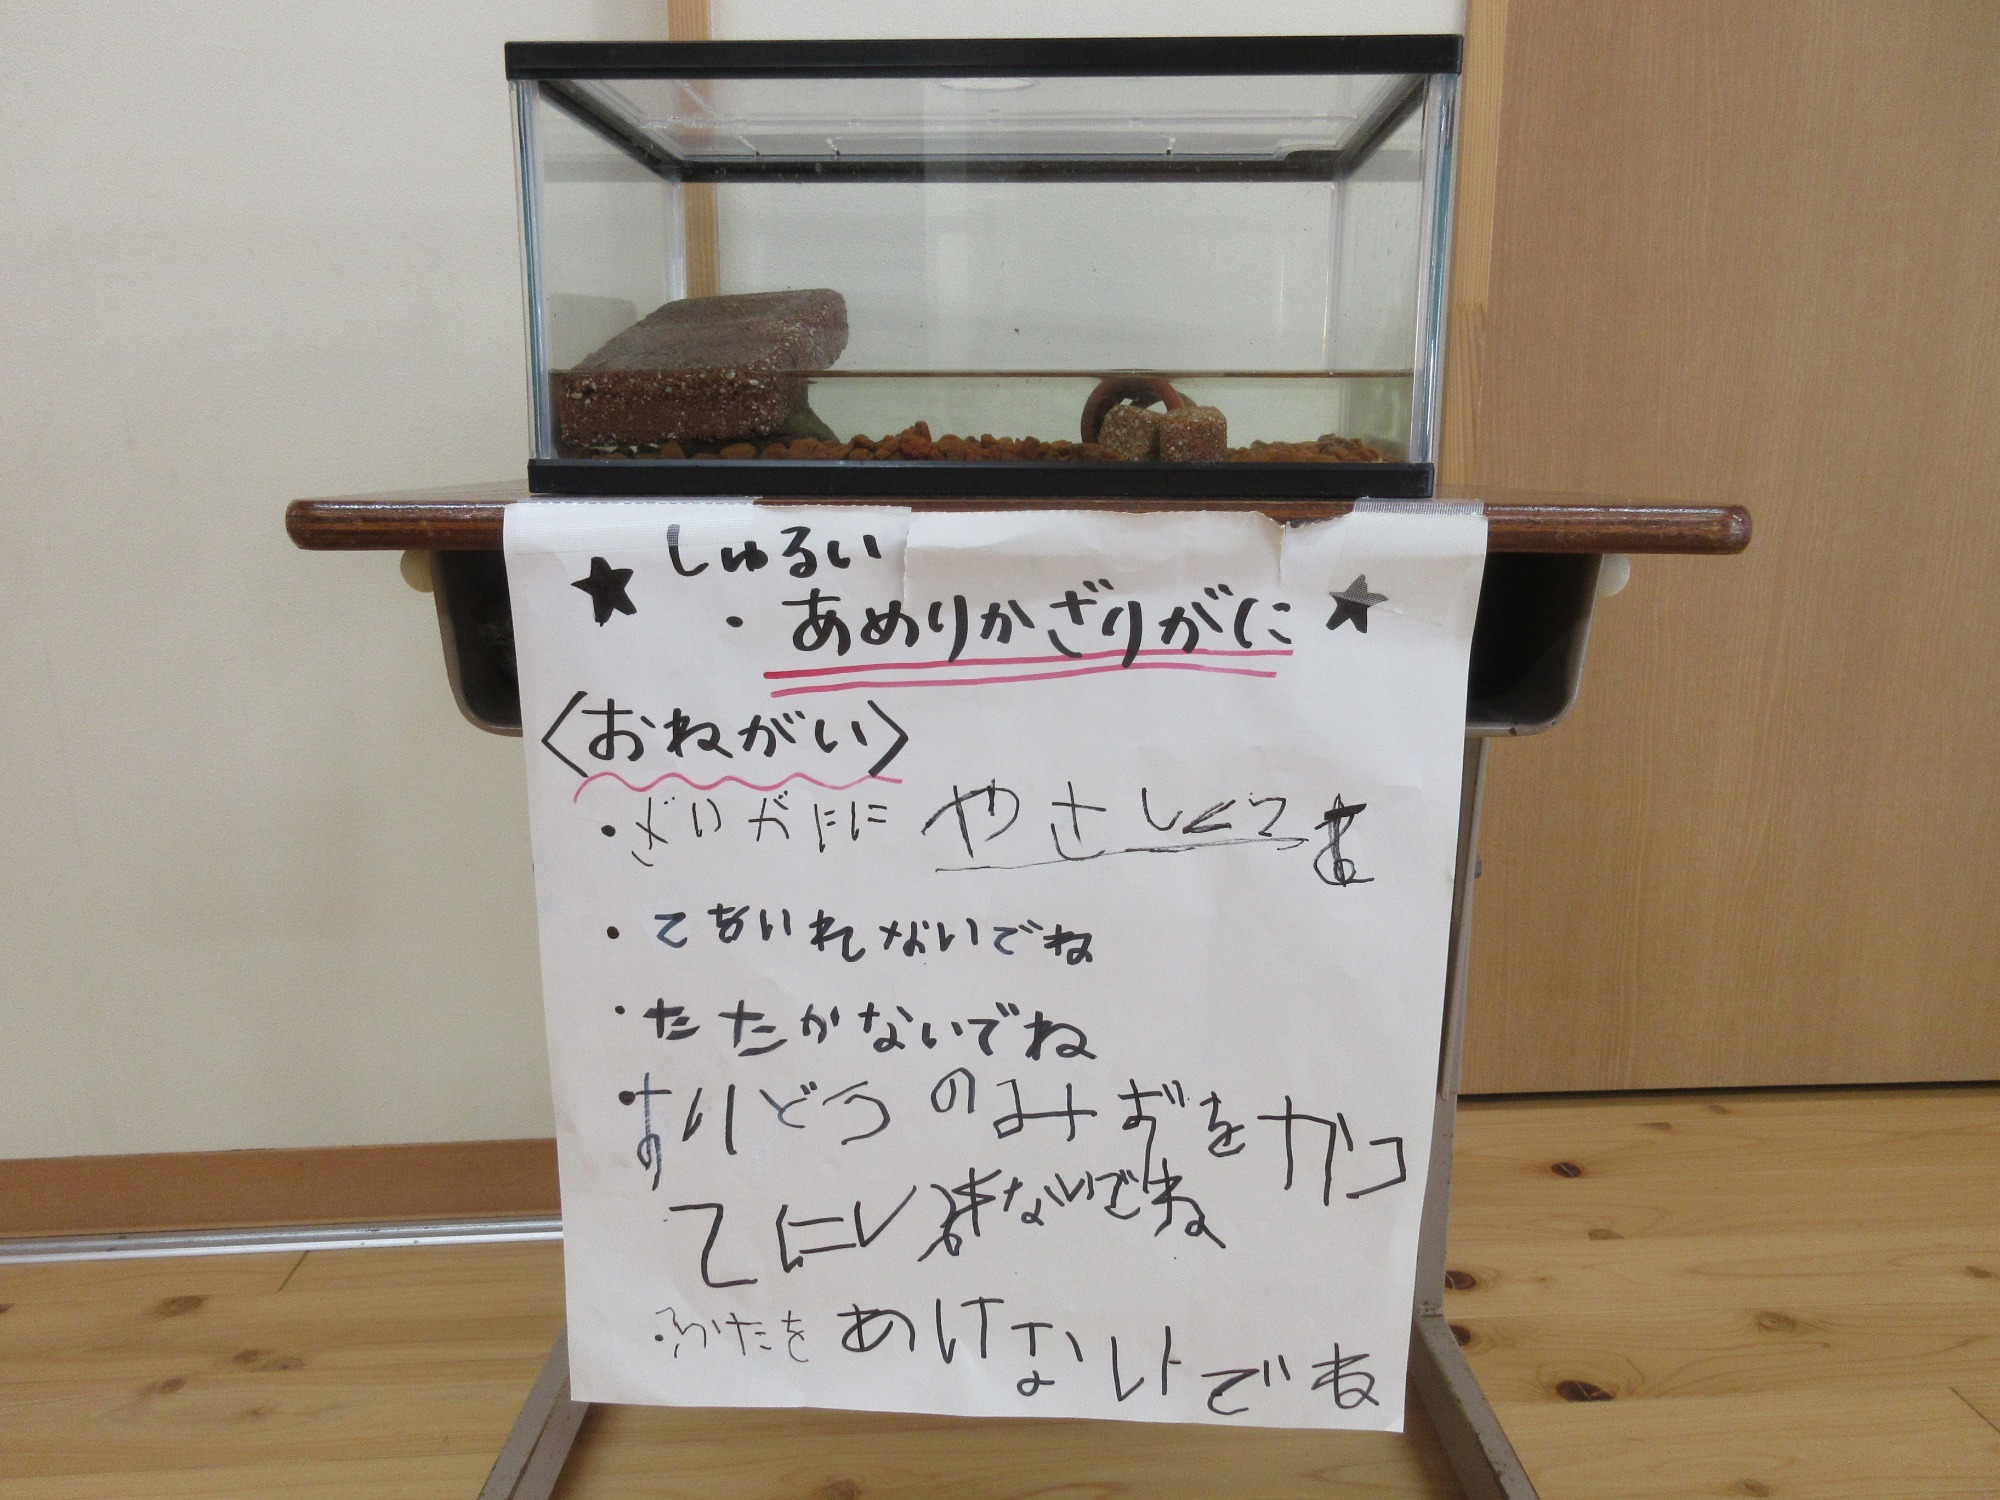 ★ しゅるい
・あめりかざりがに ★
〈おねがい〉
・ざりがにに やさしくね
・てをいれないでね
・たたかないでね
・すいどうのみずをかっ
てにいれないでね
・ふたをあけないでね